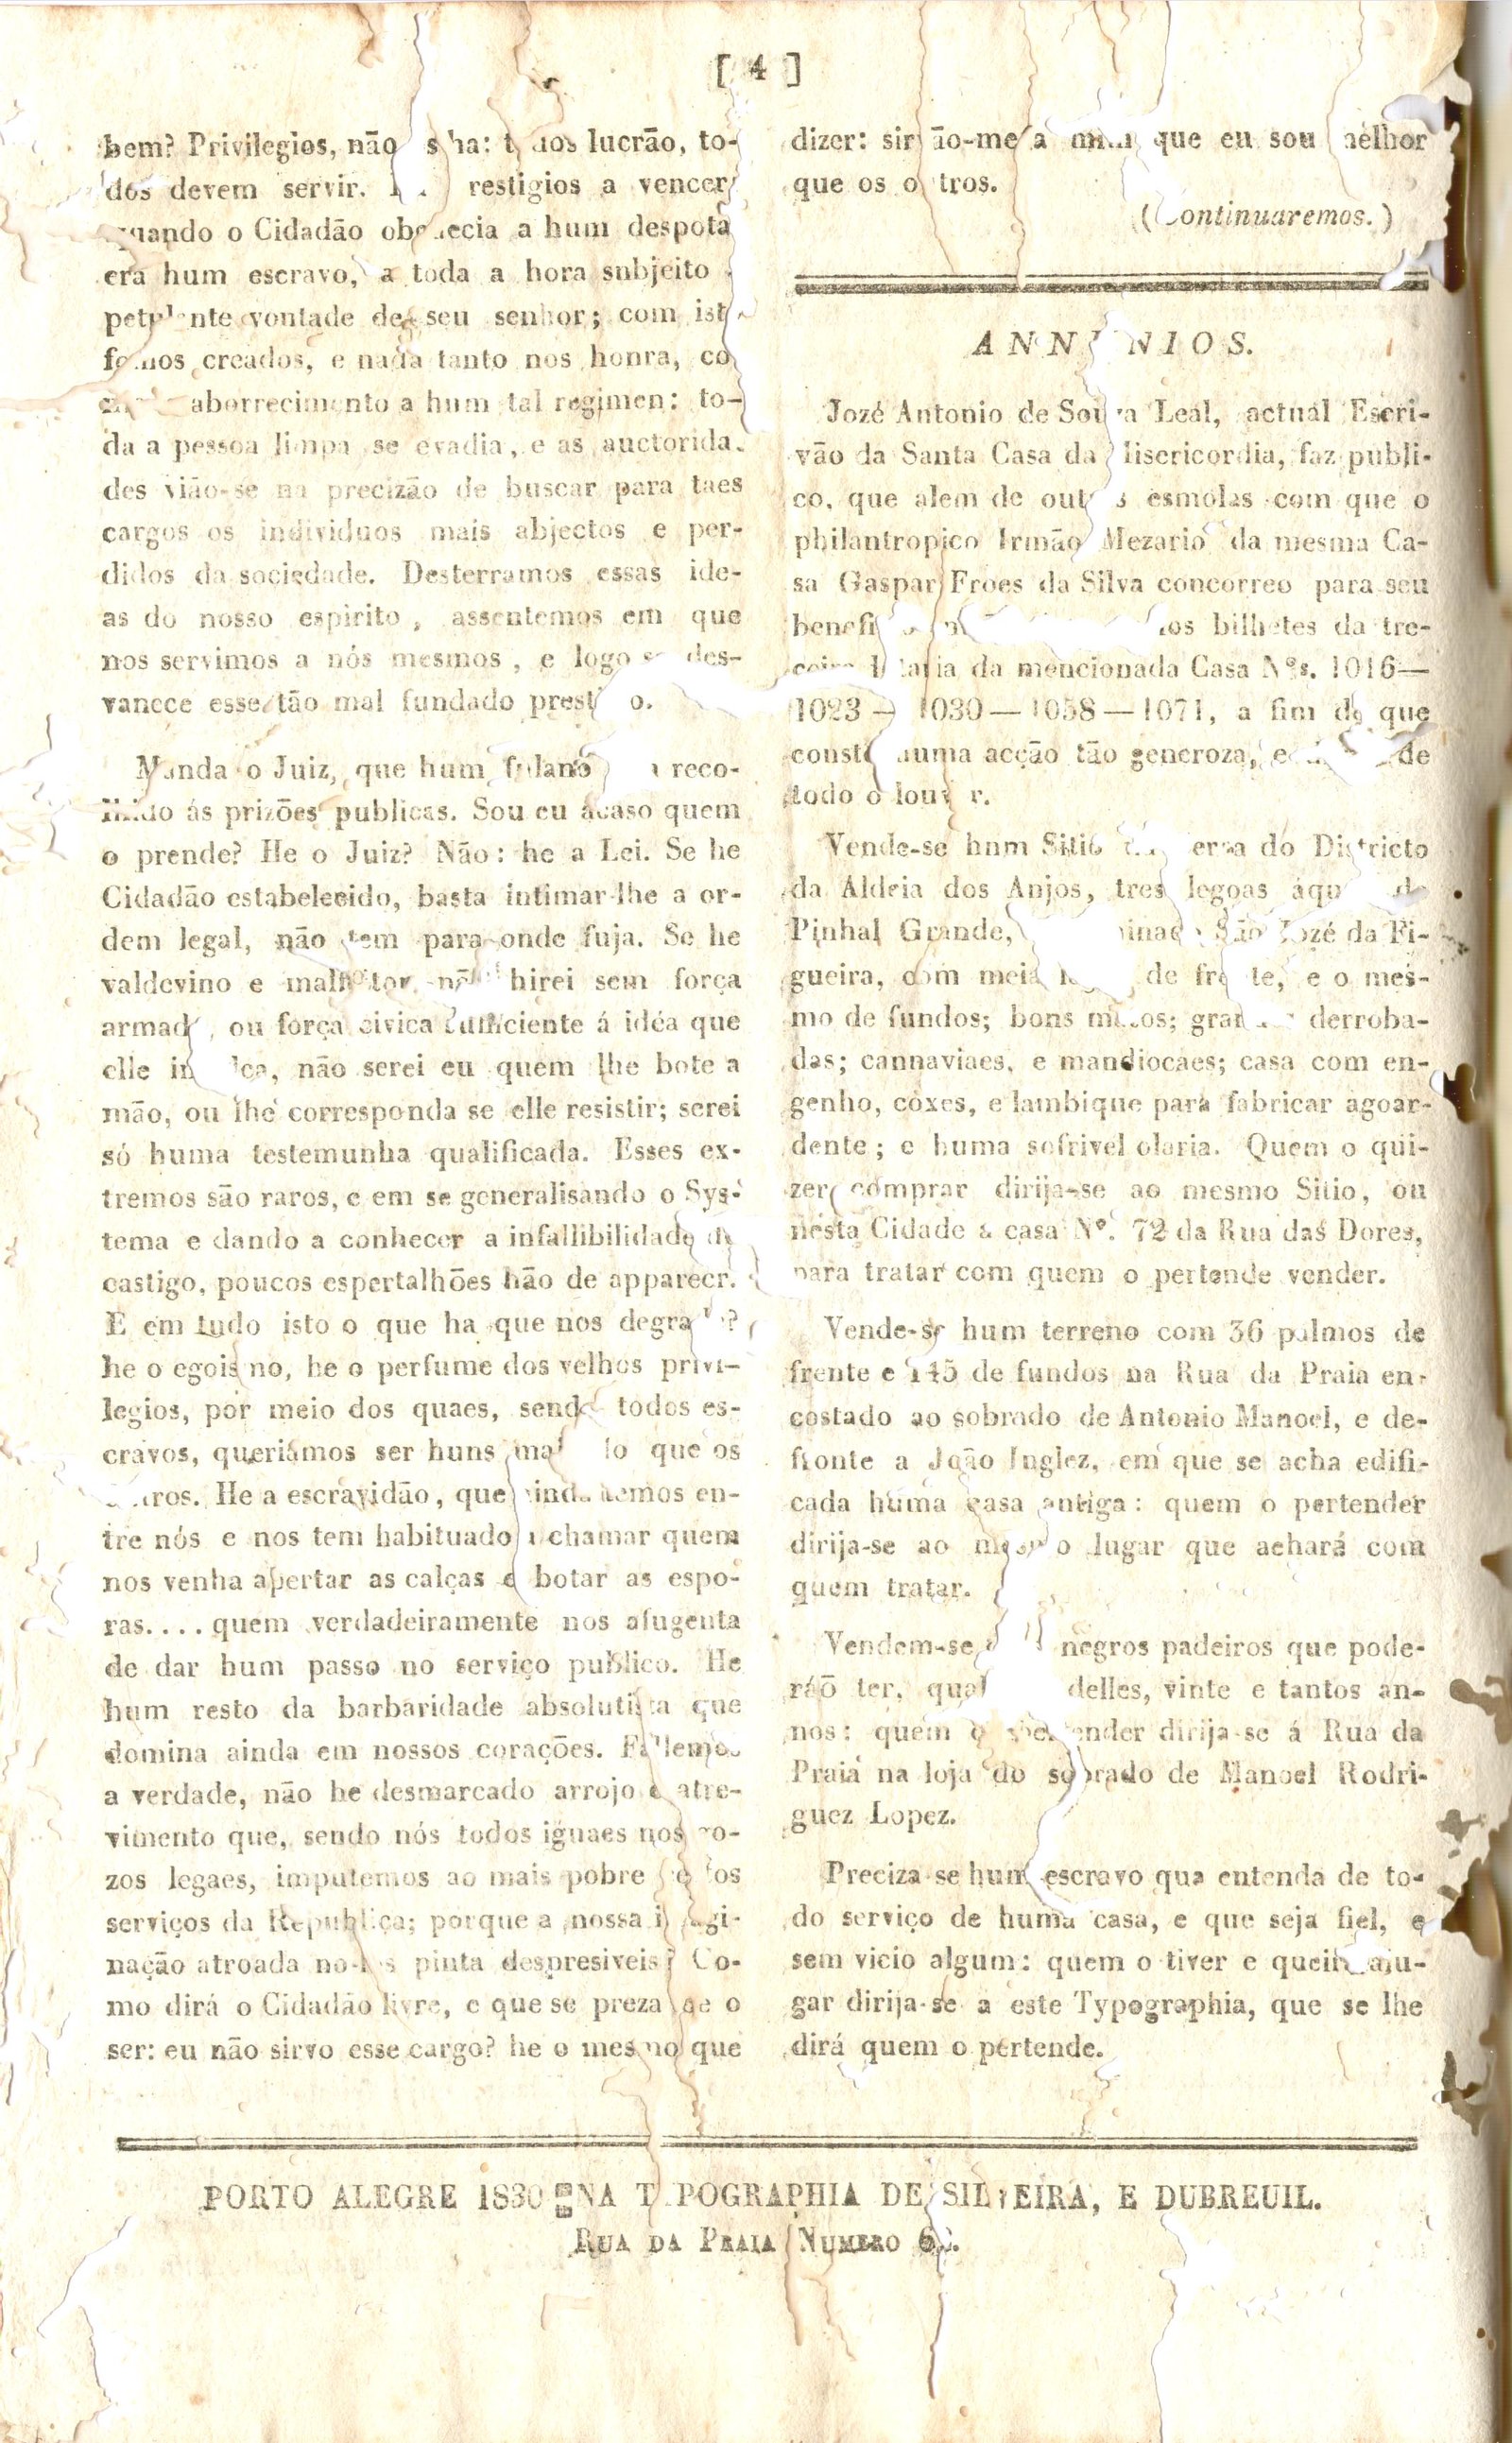 [ 4 ]
bem? Privilegios, não lucrão, to-
dos devem servir. a vencer
quando o Cidadão obedecia a hum despota
era hum escravo, a toda a hora subjeito
petulante vontade de seu senhor; com
fomos creados, e nada tanto nos honra, co
aborrecimento a hum tal regimen: to-
da a pessoa limpa se evadia, e as auctorida-
des vião-se na precizão de buscar para taes
cargos os individuos mais abjectos e per-
didos da sociedade. Desterramos essas ide-
as do nosso espirito, assentemos em que
nos servimos a nós mesmos, e logo se des-
vanece esse tão mal fundado
Manda o Juiz, que hum fulano reco-
lhido ás prizões publicas. Sou eu acaso quem
o prende? He o Juiz? Não: he a Lei. Se he
Cidadão estabelecido, basta intimar-lhe a or-
dem legal, não tem para onde fuja. Se he
valdevino e malfeitor, não hirei sem força
armada, ou força civica sufficiente á idéa que
elle não serei eu quem lhe bote a
mão, ou lhe corresponda se elle resistir; serei
só huma testemunha qualificada. Esses ex-
tremos são raros, e em se generalisando o Sys-
tema e dando a conhecer a infallibilidade do
castigo, poucos espertalhões hão de apparecr.
E em tudo isto o que ha que nos degrade?
he o egoismo, he o perfume dos velhos privi-
legios, por meio dos quaes, sendo todos es-
cravos, queriamos ser huns mais do que os
outros. He a escravidão, que ainda temos en-
tre nós e nos tem habituado a chamar quem
nos venha apertar as calças e botar as espo-
ras.... quem verdadeiramente nos afugenta
de dar hum passo no serviço publico. He
hum resto da barbaridade absolutista que
domina ainda em nossos corações. Fallemos
a verdade, não he desmarcado arrojo e atre-
vimento que, sendo nós todos iguaes nos go-
zos legaes, imputemos ao mais pobre
serviços da Republica; porque a nossa imagi-
nação atroada no-los pinta despresiveis? Co-
mo dirá o Cidadão livre, e que se preza de o
ser: eu não sirvo esse cargo? he o mesmo que
dizer: sirvão-me a mim que eu sou melhor
que os outros.
(Continuaremos.)
ANNUNIOS.
Jozé Antonio de Souza Leal, actual Escri-
vão da Santa Casa da Misericordia, faz publi-
co, que alem de outras esmolas com que o
philantropico Irmão Mezario da mesma Ca-
sa Gaspar Froes da Silva concorreo para seu
bilhetes da tre-
ceira Lotaria da mencionada Casa Nºs. 1016—
1023 — 1030 — 1058 — 1071, a fim de que
conste huma acção tão generoza, e de
todo o louvor.
Vende-se hum Sitio do Districto
da Aldeia dos Anjos, tres legoas
Pinhal Grande, São Jozé da Fi-
gueira, com meia legoa de frente, e o mes-
mo de fundos; bons matos; grandes derroba-
das; cannaviaes, e mandiocaes; casa com en-
genho, coxes, e lambique para fabricar agoar-
dente; e huma sofrivel olaria. Quem o qui-
zer comprar dirija-se ao mesmo Sitio, ou
nesta Cidade a casa Nº. 72 da Rua das Dores,
para tratar com quem o pertende vender.
Vende-se hum terreno com 36 palmos de
frente e 145 de fundos na Rua da Praia en-
costado ao sobrado de Antonio Manoel, e de-
fronte a João Inglez, em que se acha edifi-
cada huma casa antiga: quem o pertender
dirija-se ao mesmo lugar que achará com
quem tratar.
Vendem-se negros padeiros que pode-
ráõ ter, delles, vinte e tantos an-
nos: quem o pertender dirija-se á Rua da
Praia na loja do sobrado de Manoel Rodri-
guez Lopez.
Preciza-se hum escravo qua entenda de to-
do serviço de huma casa, e que seja fiel, e
sem vicio algum: quem o tiver e queira alu-
gar dirija-se a este Typographia, que se lhe
dirá quem o pertende.
PORTO ALEGRE 1830 NA TYPOGRAPHIA DE SILVEIRA, E DUBREUIL.
RUA DA PRAIA NUMERO